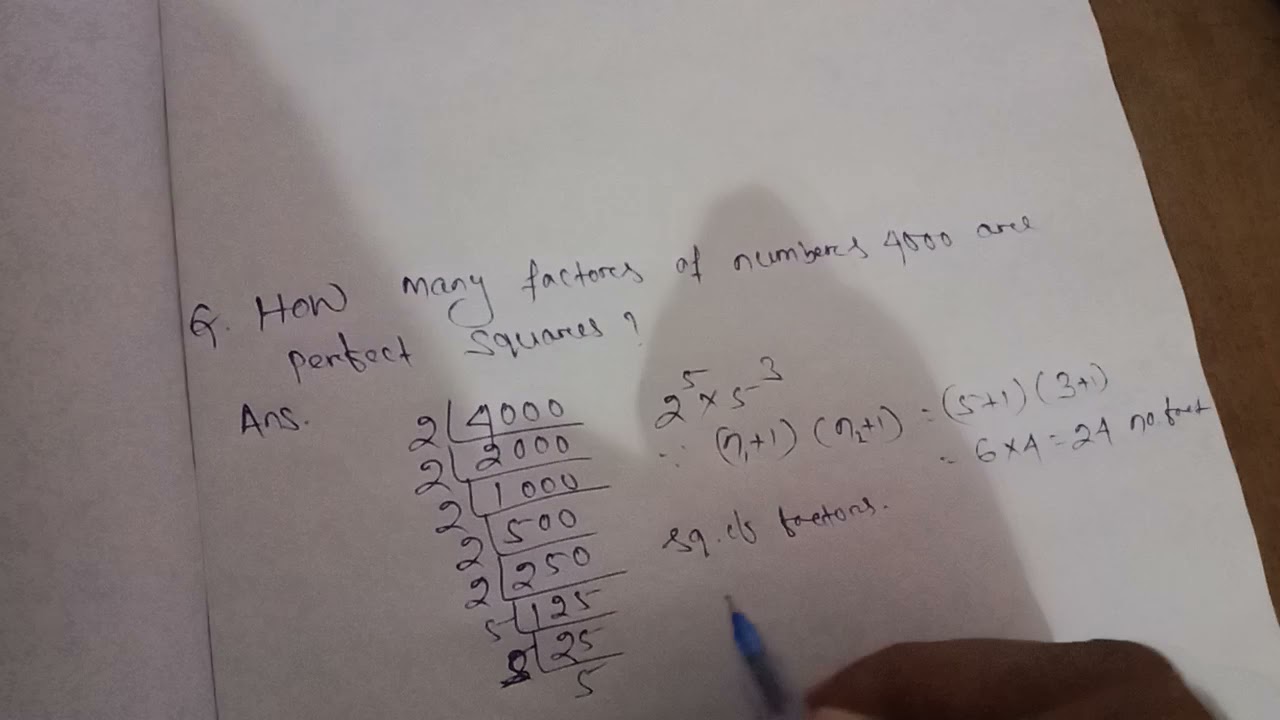 Q. How many factores of numberes 4000 are
perfect squares?
Ans.
2 4000
2 2000
2 1000
2 500
2 250
5 125
5 25
5
2⁵ × 5³
∴ (n₁+1) (n₂+1) = (5+1) (3+1)
= 6×4 = 24 no. fact
sq. of factors.